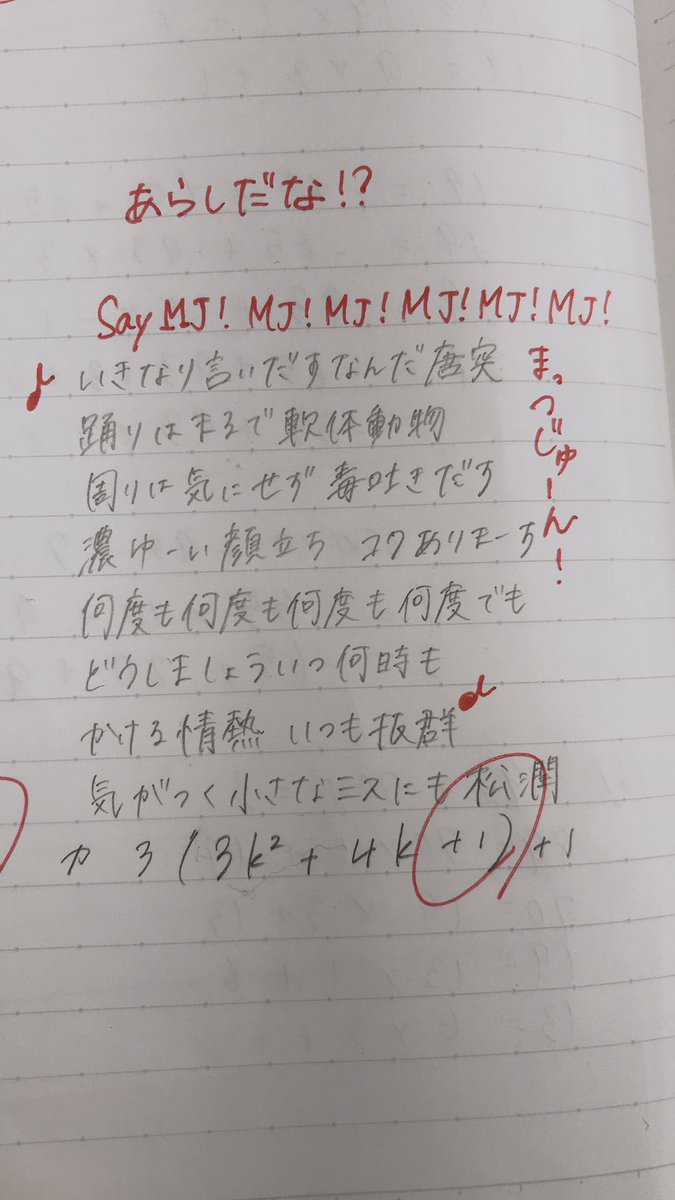 あらしだな!?
Say MJ! MJ! MJ! MJ! MJ! MJ!
♪いきなり言いだすなんだ唐突
まっつじゅーん!
踊りはまるで軟体動物
周りは気にせず毒吐きだす
濃ゆーい顔立ち コワありまーち
何度も何度も何度も何度でも
どうしましょういつ何時も
かける情熱 いつも抜群♪
気がつく小さなミスにも松潤
カ 3(3k²+4k+1)+1